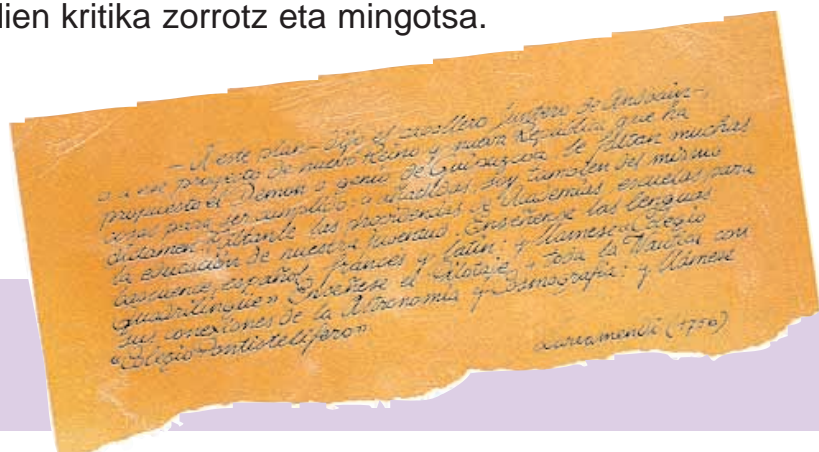 dien kritika zorrotz eta mingotsa.
– A este plan – dijo el cavallero de Andoain –
o a ese proyecto de nuevo Reino y nueva Republica que ha
propuesto el Demon o genio de Guipuzcoa le faltan muchas
cosas para ser cumplido: a añadidas. Soy tambien del mismo
las providencias de Academias, escuelas para
la educación de nuestra juventud. Enseñense las lenguas
bascuence, español, frances y latin; y llamese Colegio
quadrilingüe» Enseñese el «Pilotaje» toda la Nautica con
sus conexiones de la Astronomia y Cosmografia: y llamese
«Colegio
Larramendi (1756)